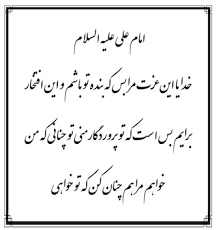 امام علی علیه السلام
خدایا این عزت مرا بس که بنده تو باشم و این افتخار
برایم بس است که تو پروردگار منی تو چنانی که من
خواهم مرا هم چنان کن که تو خواهی